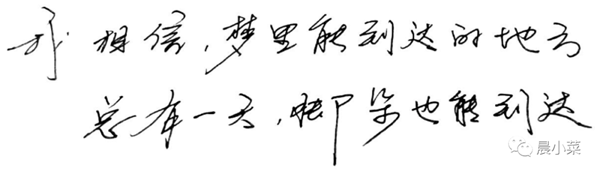 我相信,梦里能到达的地方
总有一天,脚步也能到达
晨小菜